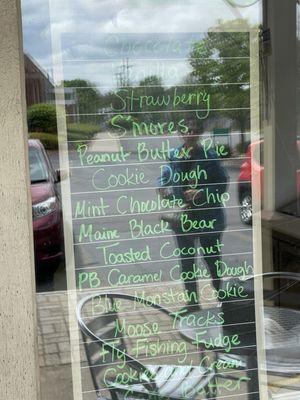 Chocolate
Vanilla
Strawberry
S'mores
Peanut Butter Pie
Cookie Dough
Mint Chocolate Chip
Maine Black Bear
Toasted Coconut
PB Caramel Cookie Dough
Blue Monstah Cookie
Moose Tracks
Fly Fishing Fudge
Cookies Cream
Butter